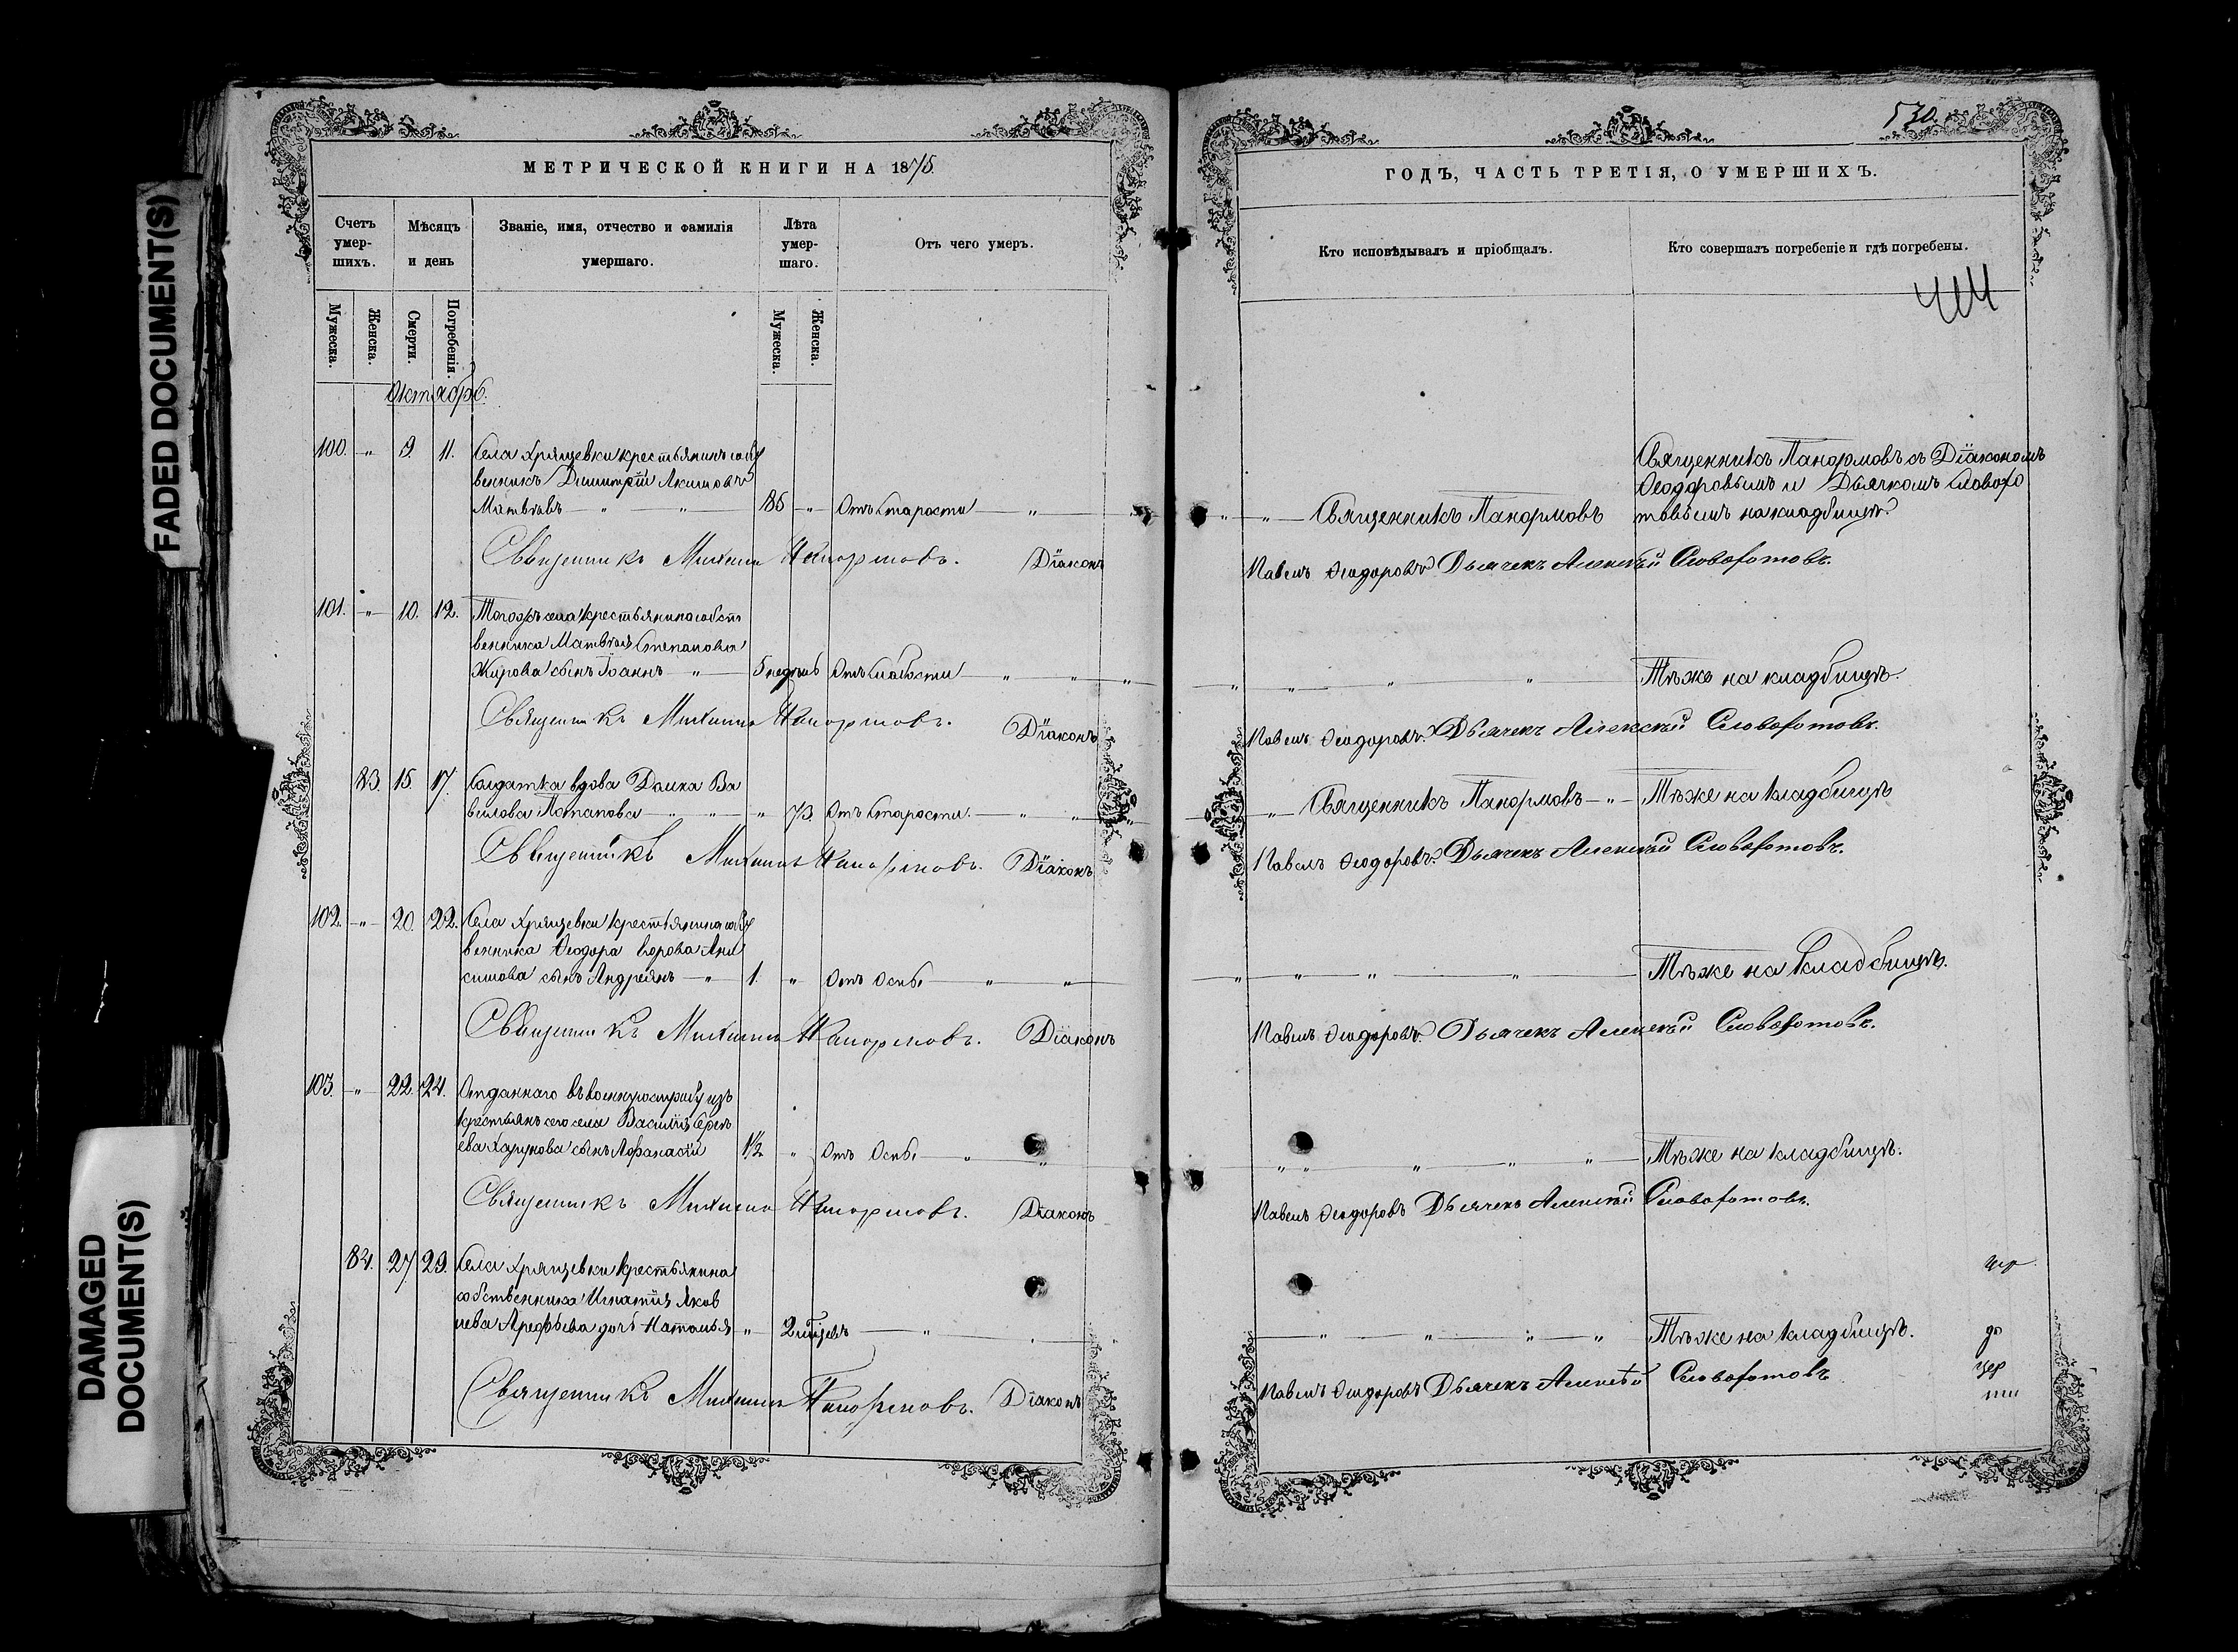 FADED DOCUMENT(S)
DAMAGED
DOCUMENT(S)
МЕТРИЧЕСКОЙ КНИГИ НА 1875.
Счетъ умер-шихъ.
Мѣсяцъ и день
Званіе, имя, отчество и фамилія умершаго.
Лѣта умер-шаго.
Отъ чего умеръ.
Мужеска. Женска. Смерти. Погребенія. Мужеска. Женска.
Октябрь.
100. " 9. 11. Села Хрящевки крестьянинъ собст
венникъ Димитрій Акимовъ
Матвѣевъ " " 85 " Отъ старости "
Священникъ Михаилъ Панормовъ. Діаконъ
101. " 10. 12. Тогожъ села крестьянина собст
венника Матвѣя Степанова
Жирова сынъ Іоаннъ " 5 недѣль Отъ слабости " " "
Священникъ Михаилъ Панормовъ. Діаконъ
83. 15. 17. Солдатка вдова Ва
вилова Потапова " " " 73. Отъ старости. " " "
Священникъ Михаилъ Панормовъ. Діаконъ
102. " 20. 22. Села Хрящевки крестьянина собст
венника Ѳеодора Егорова Ани
симова сынъ Андреянъ " 1. " Отъ Оспы " "
Священникъ Михаилъ Панормовъ. Діаконъ
103. " 22. 24. Отданнаго въ военную службу изъ
крестьянъ сего села Василія Сергѣ
ева сынъ Аѳанасій 1½ " Отъ Оспы " "
Священникъ Михаилъ Панормовъ. Діаконъ
84. 27. 29. Села Хрящевки крестьянина
собственника Игнатія Яков
лева Арефьева дочь Наталья " 2 " "
Священникъ Михаилъ Панормовъ. Діаконъ
530.
ГОДЪ, ЧАСТЬ ТРЕТІЯ, О УМЕРШИХЪ.
Кто исповѣдывалъ и пріобщалъ.
Кто совершалъ погребеніе и гдѣ погребены.
Священникъ Панормовъ съ Діакономъ
Ѳеодоровымъ и Дьячкомъ Словохо
" " Священникъ Панормовъ товымъ на кладбищѣ
Павелъ Ѳеодоровъ. Дьячекъ Алексѣй Словохотовъ.
" " " " Тѣже на кладбищѣ.
Павелъ Ѳеодоровъ. Дьячекъ Алексѣй Словохотовъ.
" Священникъ Панормовъ " Тѣже на кладбищѣ
Павелъ Ѳеодоровъ. Дьячекъ Алексѣй Словохотовъ.
" " " " Тѣже на кладбищѣ.
Павелъ Ѳеодоровъ. Дьячекъ Алексѣй Словохотовъ.
" " " " " Тѣже на кладбищѣ.
Павелъ Ѳеодоровъ Дьячекъ Алексѣй Словохотовъ.
" " " " Тѣже на кладбищѣ.
Павелъ Ѳеодоровъ Дьячекъ Алексѣй Словохотовъ